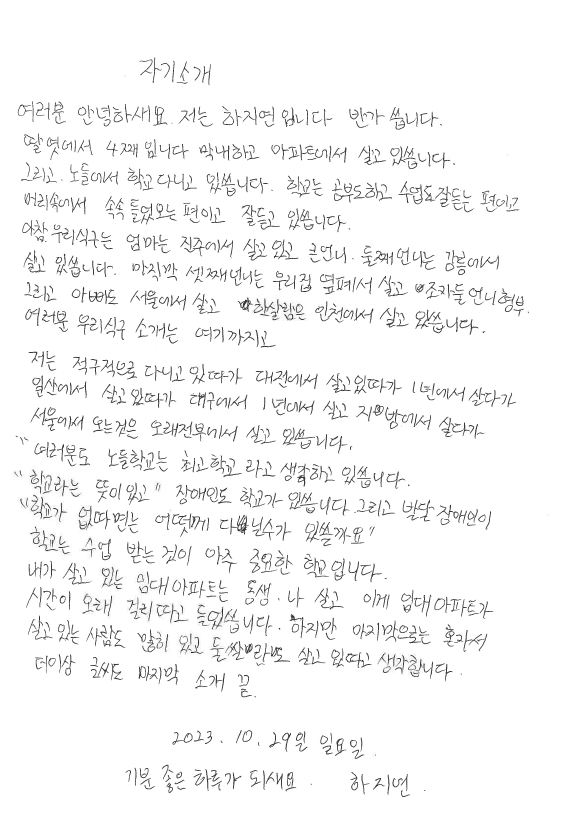 자기소개
여러분 안녕하새요. 저는 하지연입니다 반가 씁니다.
딸 엿에서 4째 입니다 막내하고 아파트에서 살고 있씁니다.
그리고. 노들에서 학교다니고 있씁니다. 학교는 공부도하고 수업도잘듣는 편이고
머리속에서 속속 들었오는 편이고 잘듣고 있씁니다.
아참. 우리식구는 엄마는 진주에서 살고 있고 큰언니. 둘째언니는 강릉에서
살고 있씁니다. 마직깍 셋째년니는 우리집 옆페서 살고 조카둘언니형부.
그리고 아빠도 서울에서 살고 한살람은 인천에서 살고 있씁니다.
여러분 우리식구 소개는 여기까지고
저는 적구적으로 다니고있따가 대전에서 살고있따가 1년에서 살다가
일산에서 살고 있따가 대구에서 1년에서 살고 지방에서 살다가
서울에서 오는것은 오래전부에서 살고 있씁니다.
"여러분도 노들학교는 최고학교 라고 생각하고 있씁니다.
"학교라는 뜻이있고" 장애인도 학교가 있씁니다 그리고 발달 장애인이
"학교가 없따면는 어떳게 다닐수가 있쓸까요"
학교는 수업 받는것이 아주 중요한 학교입니다.
내가 살고 있는 임대아파트는 동생. 나 살고 이게 임대아파트가
시간이 오래 걸리따고 들었씁니다. 하지만 마지막으로는 혼자서
살고 있는 사람도 많히 있고 둘싿 살고 있따고 생각합니다.
더이상 글씨도 마지막 소개 끝.
2023. 10. 29일 일요일.
기분 좋은 하루가 되새요. 하지연.